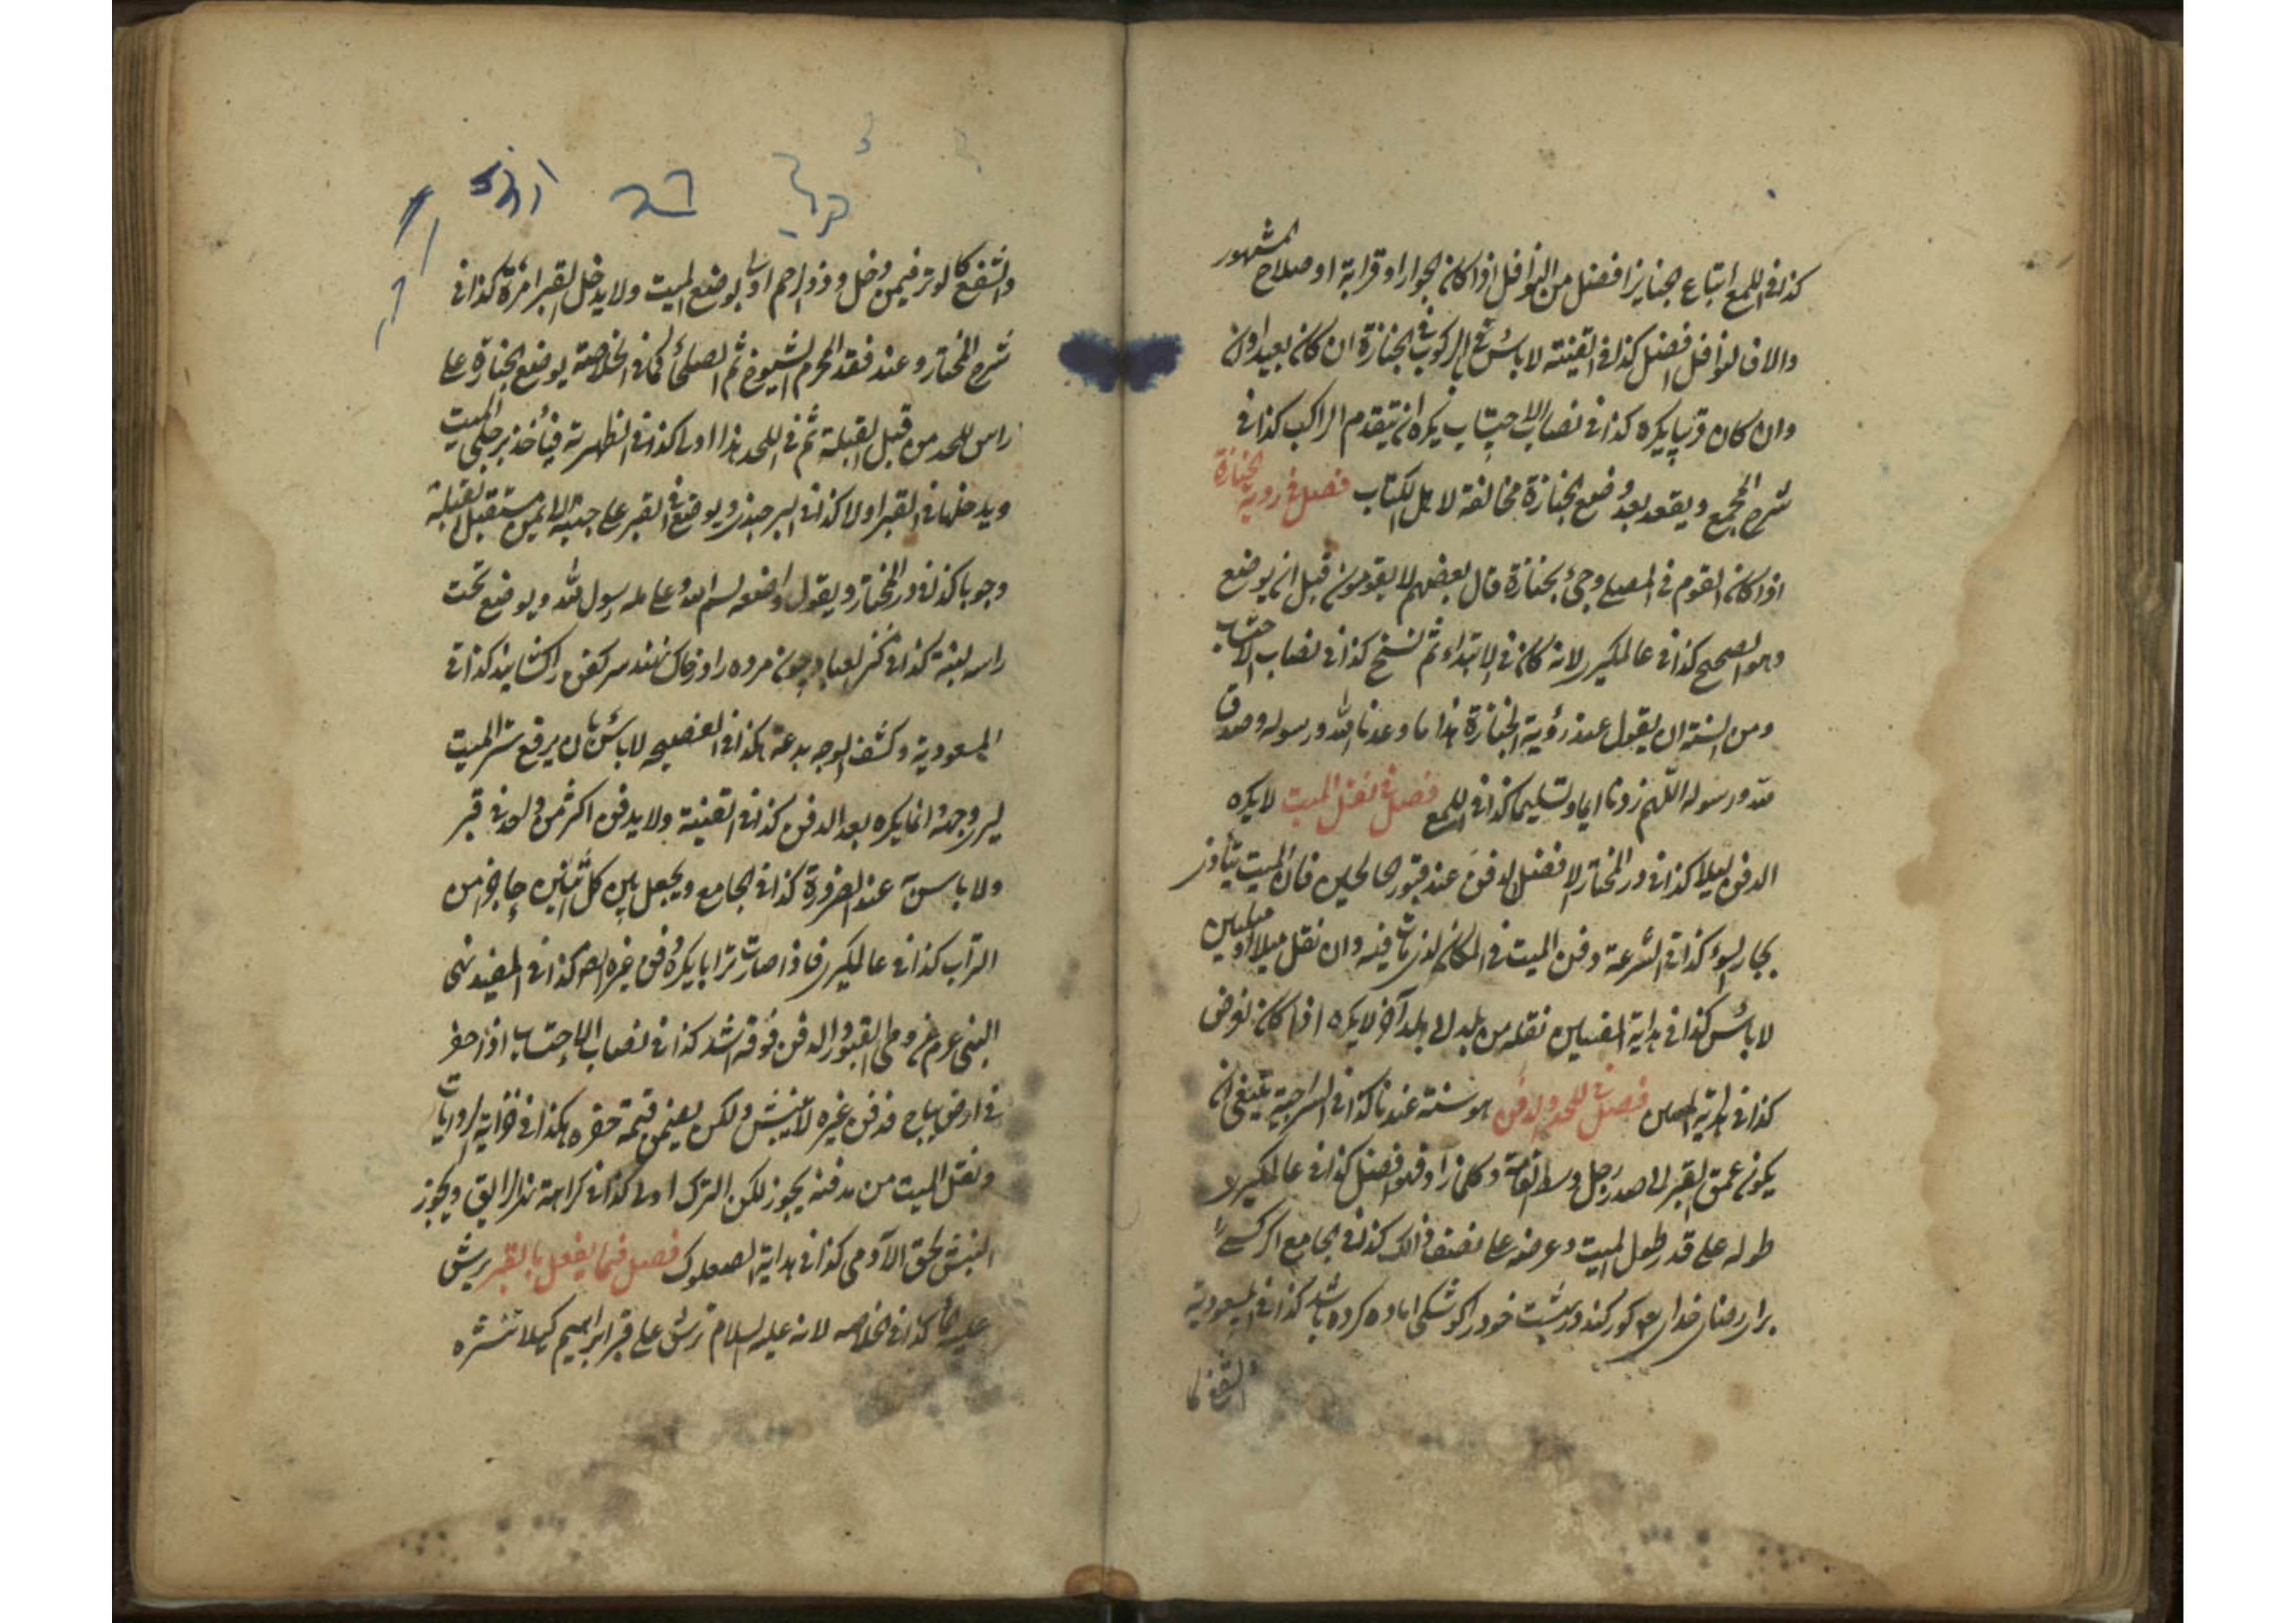 كذا في اللمع اتباع الجنايز افضل من النوافل اذا كان الجوار او قرابة او صلاح المشهور
والا فالنوافل افضل كذا في القنية لا باس بالركوب في الجنازة ان كان بعيدا
وان كان قريبا يكره كذا في نصاب الاحتساب يكره ان يتقدم الراكب كذا في
شرح المجمع ويقعد بعد وضع الجنازة مخالفة لاهل الكتاب فصل في روية الجنازة
اذا كان القوم في المصلى وجئ بجنازة قال بعضهم لا يقومون قبل ان يوضع
وهو الصحيح كذا في عالمكيري لانه كان في الابتداء ثم نسخ كذا في نصاب الاحتساب
ومن السنة ان يقول عند رؤية الجنازة هذا ما وعدنا الله ورسوله وصدق
الله ورسوله اللهم زدنا ايمانا وتسليما كذا في اللمع فصل في نقل الميت لا يكره
الدفن ليلا كذا في در المختار الافضل الدفن عند قبور الصالحين فان الميت يتاذى
بجار السوء كذا في الشرعة دفن الميت في المكان الذي مات فيه وان نقل ميلا او ميلين
لا باس كذا في هداية المفتيين نقله من بلد الى بلد آخر لا يكره اذا كان لغرض
كذا في فصل في اللحد والدفن هو سنة عندنا كذا في السراجية ينبغي ان
يكون عمق القبر الى صدر رجل وسط القامة وكلما زاد فهو افضل كذا في عالمكيري
طوله على قدر طول الميت وعرضه على نصف ذلك كذا في الجامع اگر كسے
براي رضاي خداي گور كند و پشت خود را كرده باشد كذا في المسعودية
والشفع كا
والشفع كالوتر فيمن دخل وذو الرحم اولى بوضع الميت ولا يدخل القبر امرة كذا في
شرح المختار وعند فقد المحرم الشيوخ ثم الصلحاء كما في الخلاصة يوضع الجنازة على
راس اللحد من قبل القبلة ثم في اللحد هذا اولى كذا في الظهيرية فيأخذ برجلي الميت
ويدخلها في القبر اولا كذا في البرجندي ويوضع في القبر على جنبه الايمن مستقبل القبلة
وجوبا كذا في در المختار ويقول واضعه بسم الله وعلى ملة رسول الله ويوضع تحت
راسه لبنة كذا في كنز العباد چون مرده را در خاك نهند سر كفن را كشايند كذا في
المسعودية وكشف الوجه بدعة هكذا في النصيحة لا باس بان يرفع ستر الميت
ليرى وجهه انما يكره بعد الدفن كذا في القنية ولا يدفن اكثر من واحد في قبر
ولا باس عند الضرورة كذا في الجامع ويجعل بين كل اثنين حاجز من
التراب كذا في عالمكيري فاذا صارت ترابا يكره دفن غيره كذا في المفيد نهى
النبي عن وطي القبور والدفن فوقه اشد كذا في نصاب الاحتساب اذا حفر
في ارض مباح فدفن غيره لا ينبش ولكن يضمن قيمة حفره هكذا في خزانة الروايات
ونقل الميت من مدفنه يجوز لكن الترك اولى كذا في كراهة ويجوز
النبش لحق الآدمي كذا في هداية الصعلوك فصل فيما يفعل بالقبر يرش
عليه كذا في الخلاصة لانه عليه السلام رش على قبر ابراهيم كيلا